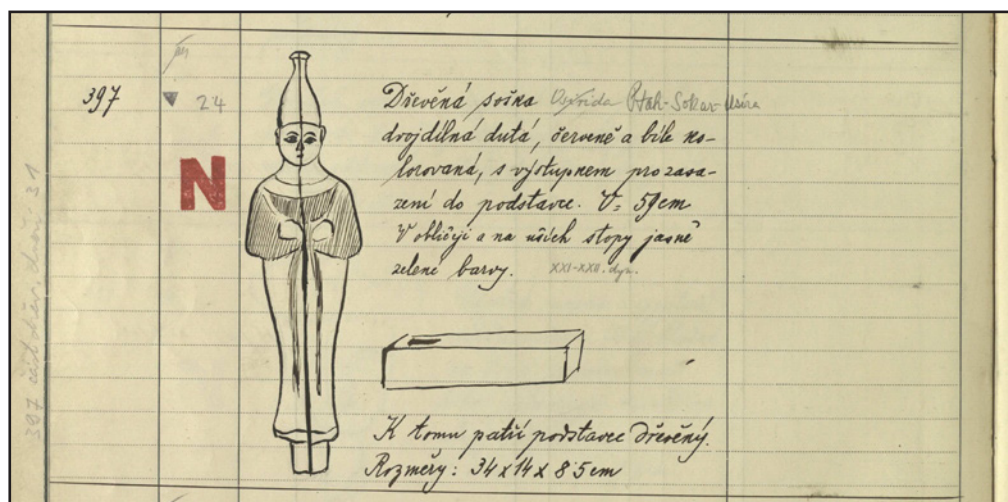 397
24
N
Dřevěná soška Osirida Ptah-Sokar-Usira
dvojdílná dutá, červeně a bíle ko-
lorovaná, s výstupkem pro zasa-
zení do podstavce. V= 59cm
V obličeji a na uších stopy jasně
zelené barvy. XXI-XXII. dyn.
K tomu patří podstavec dřevěný.
Rozměry: 34 x 14 x 8·5 cm
397
31